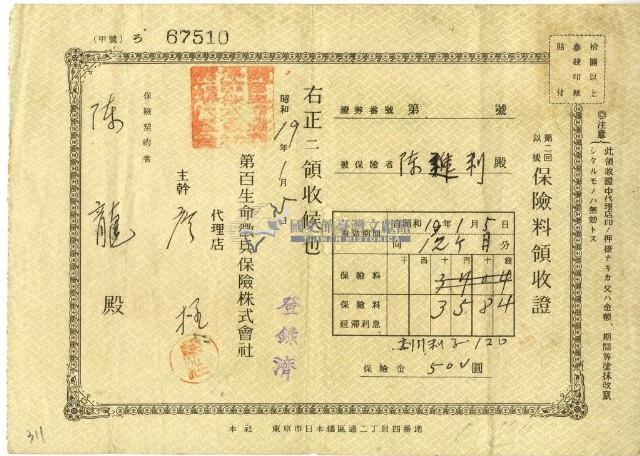 (甲號) ろ 67510
拾圓以上
貼付
◎注意
此領收證中代理店印ノ押捺ナキカ又ハ金額、期間等塗抹改竄
シタルモノハ無効トス
第二回以後 保險料領收證
證券番號 第 號
被保險者 陳進利 殿
自昭和19年1月5日
向12ケ月分
千百十円十錢
保險料 3704
保險料
延滯利息 3584
120
保險金 500圓
右正ニ領收候也
昭和19年1月5日
第百生命徵兵保險株式會社
代理店
主幹
登録濟
保險契約者
陳 龍 殿
國史館臺灣文獻館
TAIWAN HISTORICA
本社 東京市日本橋區通二丁目四番地
311